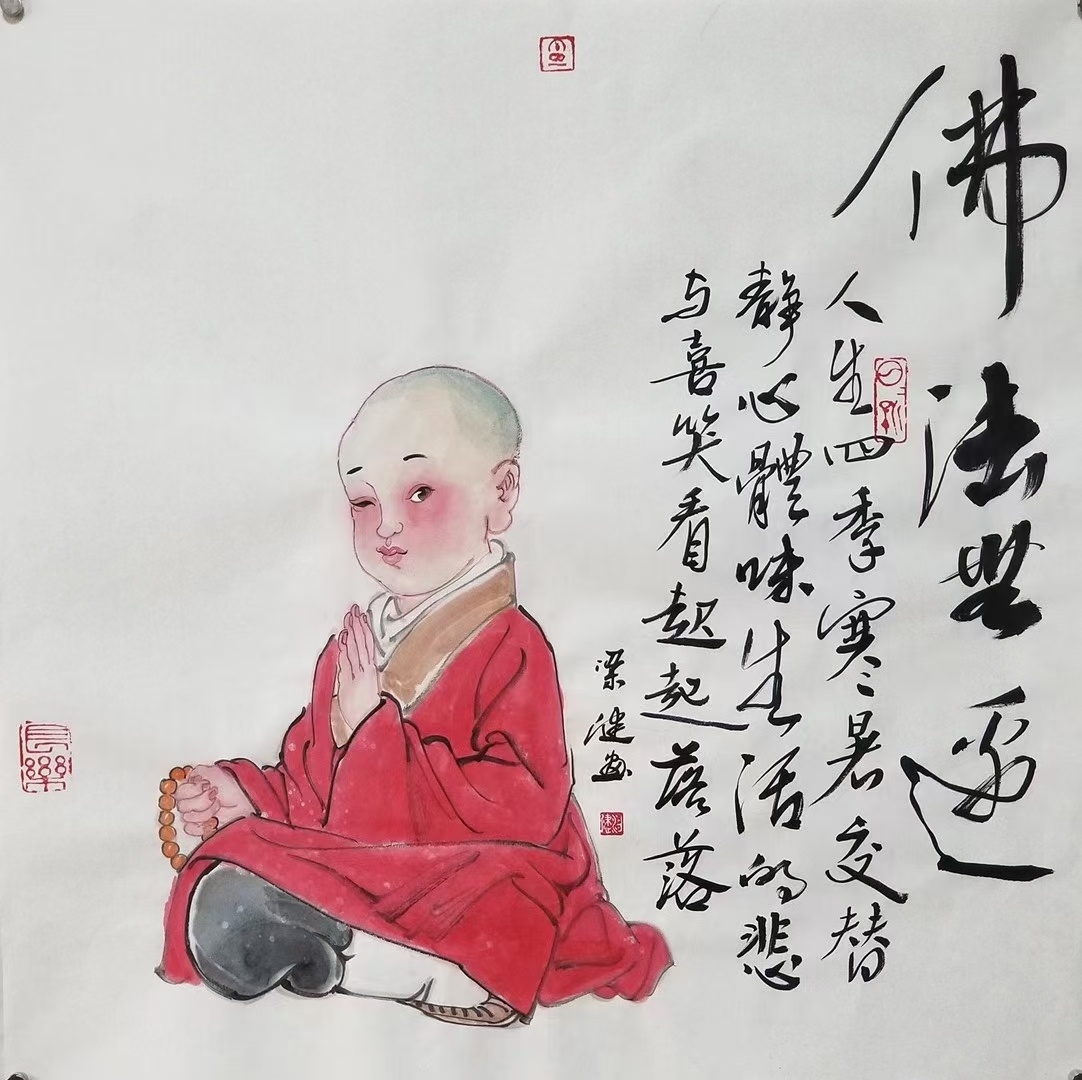 佛法無邊
人生四季寒暑交替
静心體味生活的悲
与喜笑看起起落落
梁健畫
長樂